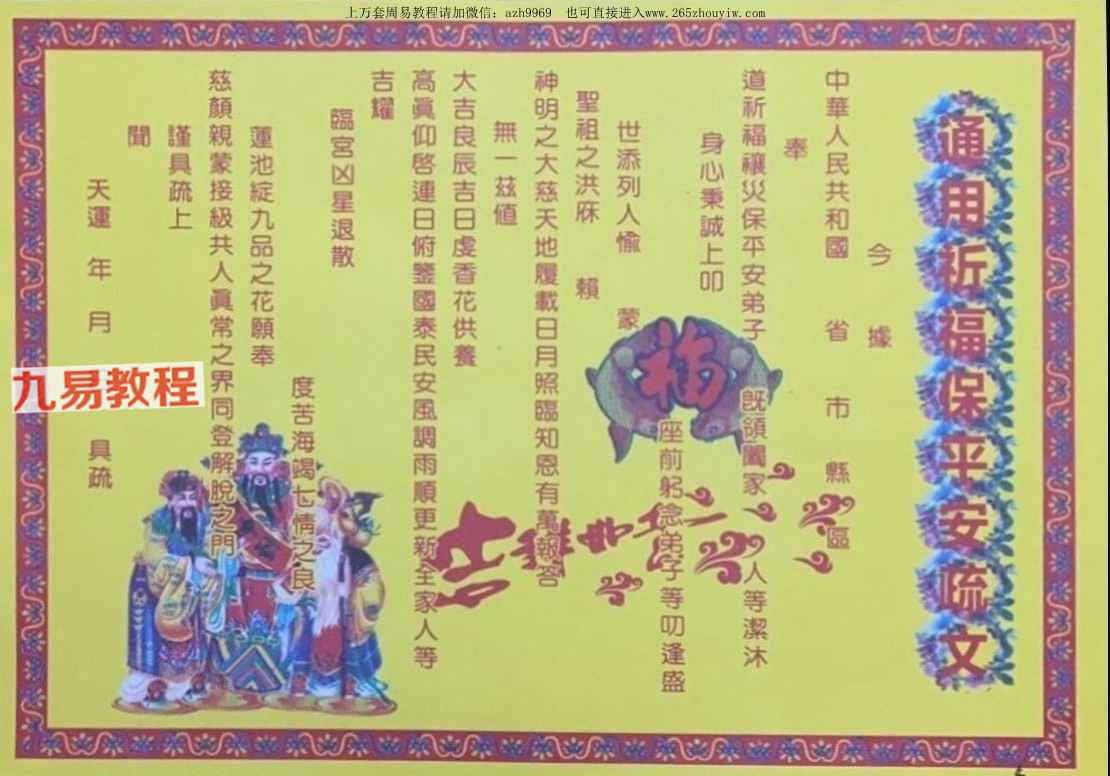 上万套周易教程请加微信：azh9969 也可直接进入www.265zhouyiw.com
通用祈福保平安疏文
今據
中華人民共和國 省 市 縣 區
奉
道祈福禳災保平安弟子 既領闔家 人等潔沐
身心秉誠上叩
座前躬念弟子等叨逢盛
世添列人愉 蒙
聖祖之洪庥 賴
神明之大慈天地履載日月照臨知恩有萬報答
無一茲値
大吉良辰吉日虔香花供養
高眞仰啓連日俯鑒國泰民安風調雨順更新全家人等
吉耀
臨宮凶星退散
度苦海謁七情之良
蓮池綻九品之花願奉
慈顏親蒙接級共人眞常之界同登解脫之門
謹具疏上
聞
天運 年 月 具疏
福
九易教程